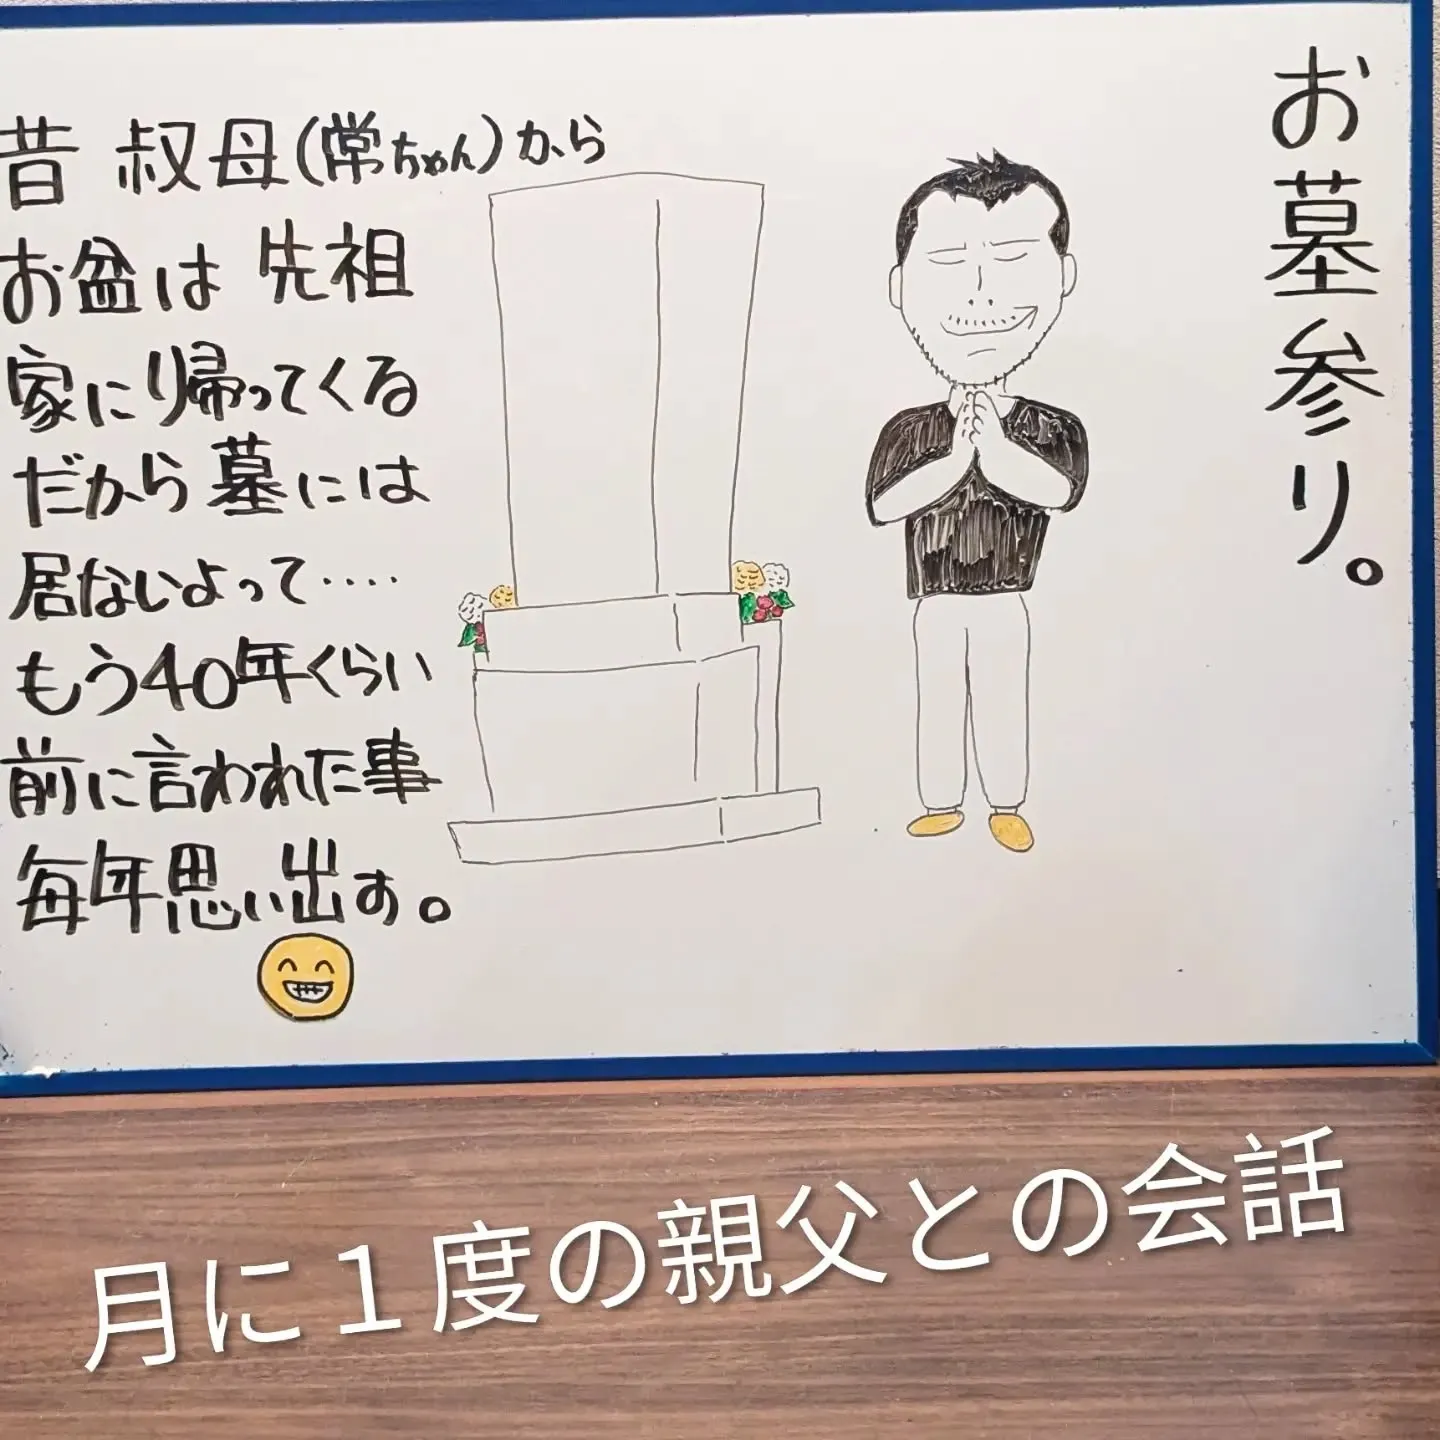 お墓参り。
昔 叔母(常ちゃん)から
お盆は 先祖
家に帰ってくる
だから墓には
居ないよって‥‥
もう40年くらい
前に言われた事
毎年思い出す。
月に1度の親父との会話